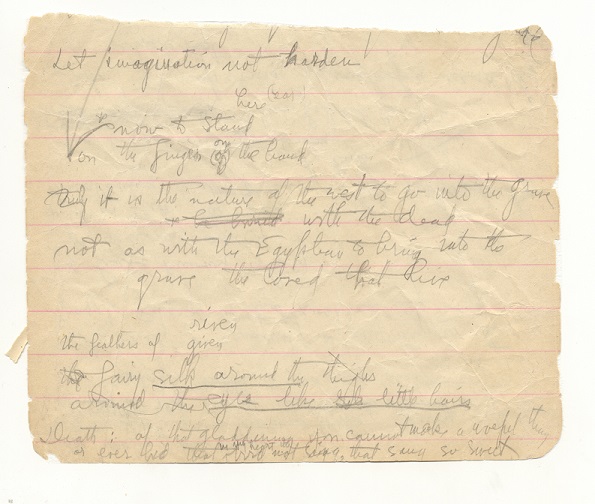 Let imagination not harden!
her (ear)
now to stand
on the finger of the hand
Truly it is the nature of the west to go into the grave
with the dead
not as with the Egyptian to bring into the
grave the loved that live
risen
the feathers of given
fairy silk around the thighs
around the eye like little hairs
Death: of that
as ever bird that not sang, that sang so sweet